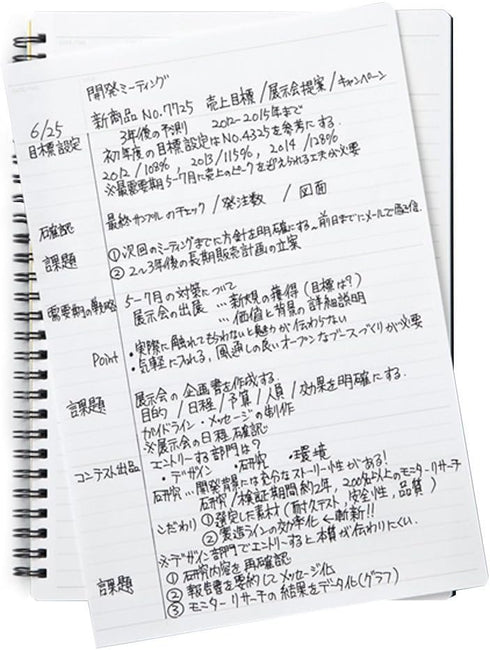 開発ミーティング
6/25 新商品 No.7725 売上目標/展示会提案/キャンペーン
目標設定 3年後の予測 2012-2015年まで
初年度の目標設定はNo.4325を参考にする。
2012/108% 2013/115%, 2014/128%
※最需要期5-7月に売上のピークを迎えられる工夫が必要
確認 最終サンプルのチェック/発注数 /図面
課題 ①次回のミーティングまでに方針を明確にする→前日までにメールで返信
②2~3年後の長期販売計画の立案
需要期の戦略 5-7月の対策について
展示会の出展 …新規の獲得(目標は?)
…価値と背景の詳細説明
Point ・実際に触れてもらわないと魅力が伝わらない
・気軽に入れる、風通しの良いオープンなブースづくりが必要
課題 展示会の企画書を作成する。
目的/日程/予算/人員/効果を明確にする。
ガイドライン・メッセージの制作
※展示会の日程確認
コンテスト出品 エントリーする部門は?
・デザイン ・研究 ・環境
研究…開発背景には充分なストーリー性がある!
研究/検証期間約2年、200名以上のモニターリサーチ
こだわり ①選定した素材(耐久テスト,安全性,品質)
②製造ラインの効率化←斬新!!
※デザイン部門でエントリーすると本質が伝わりにくい。
課題 ①研究内容を再確認
②報告書を要約してメッセージ化
③モニターリサーチの結果をデータ化(グラフ)